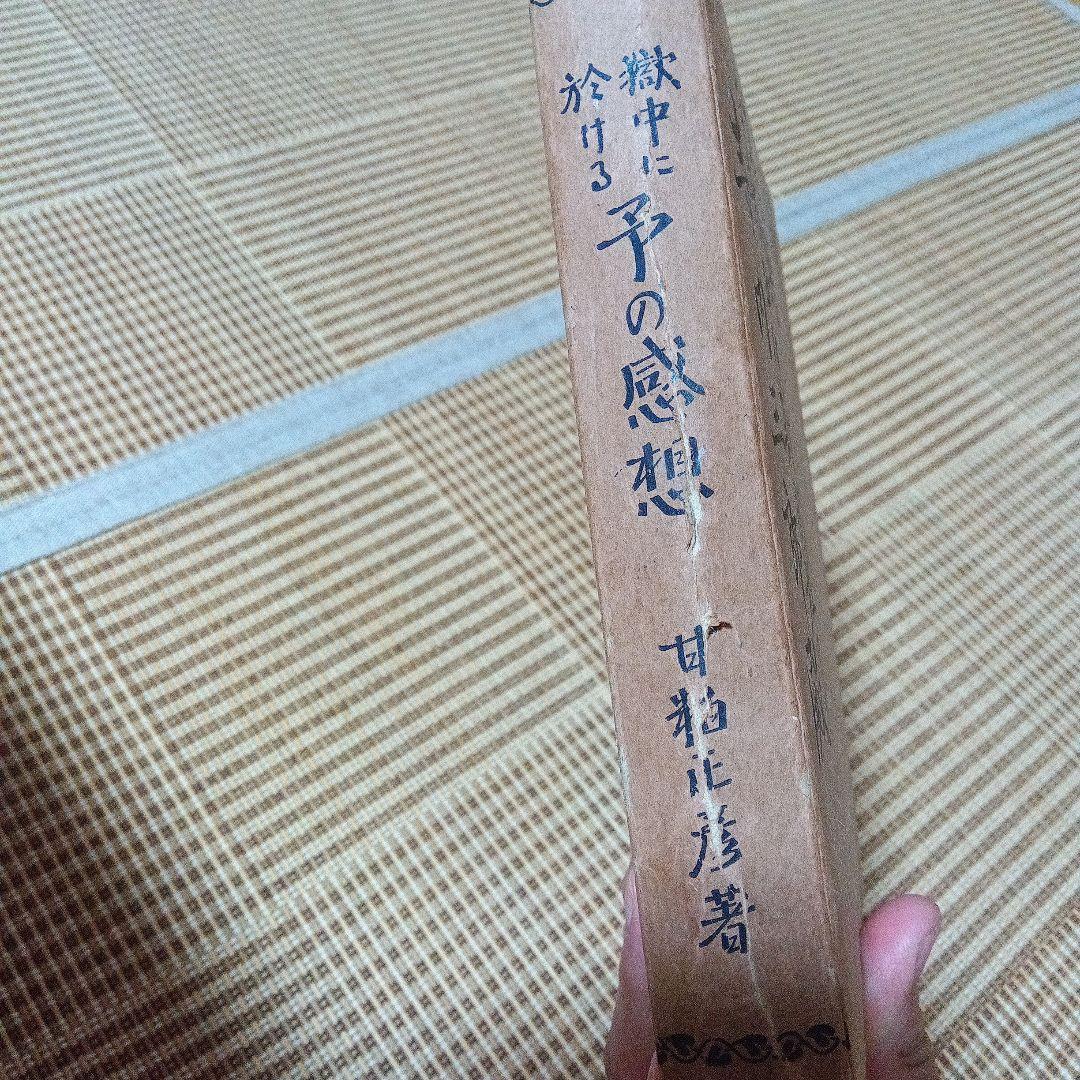 獄中に
於ける
予の感想
甘粕正彦著